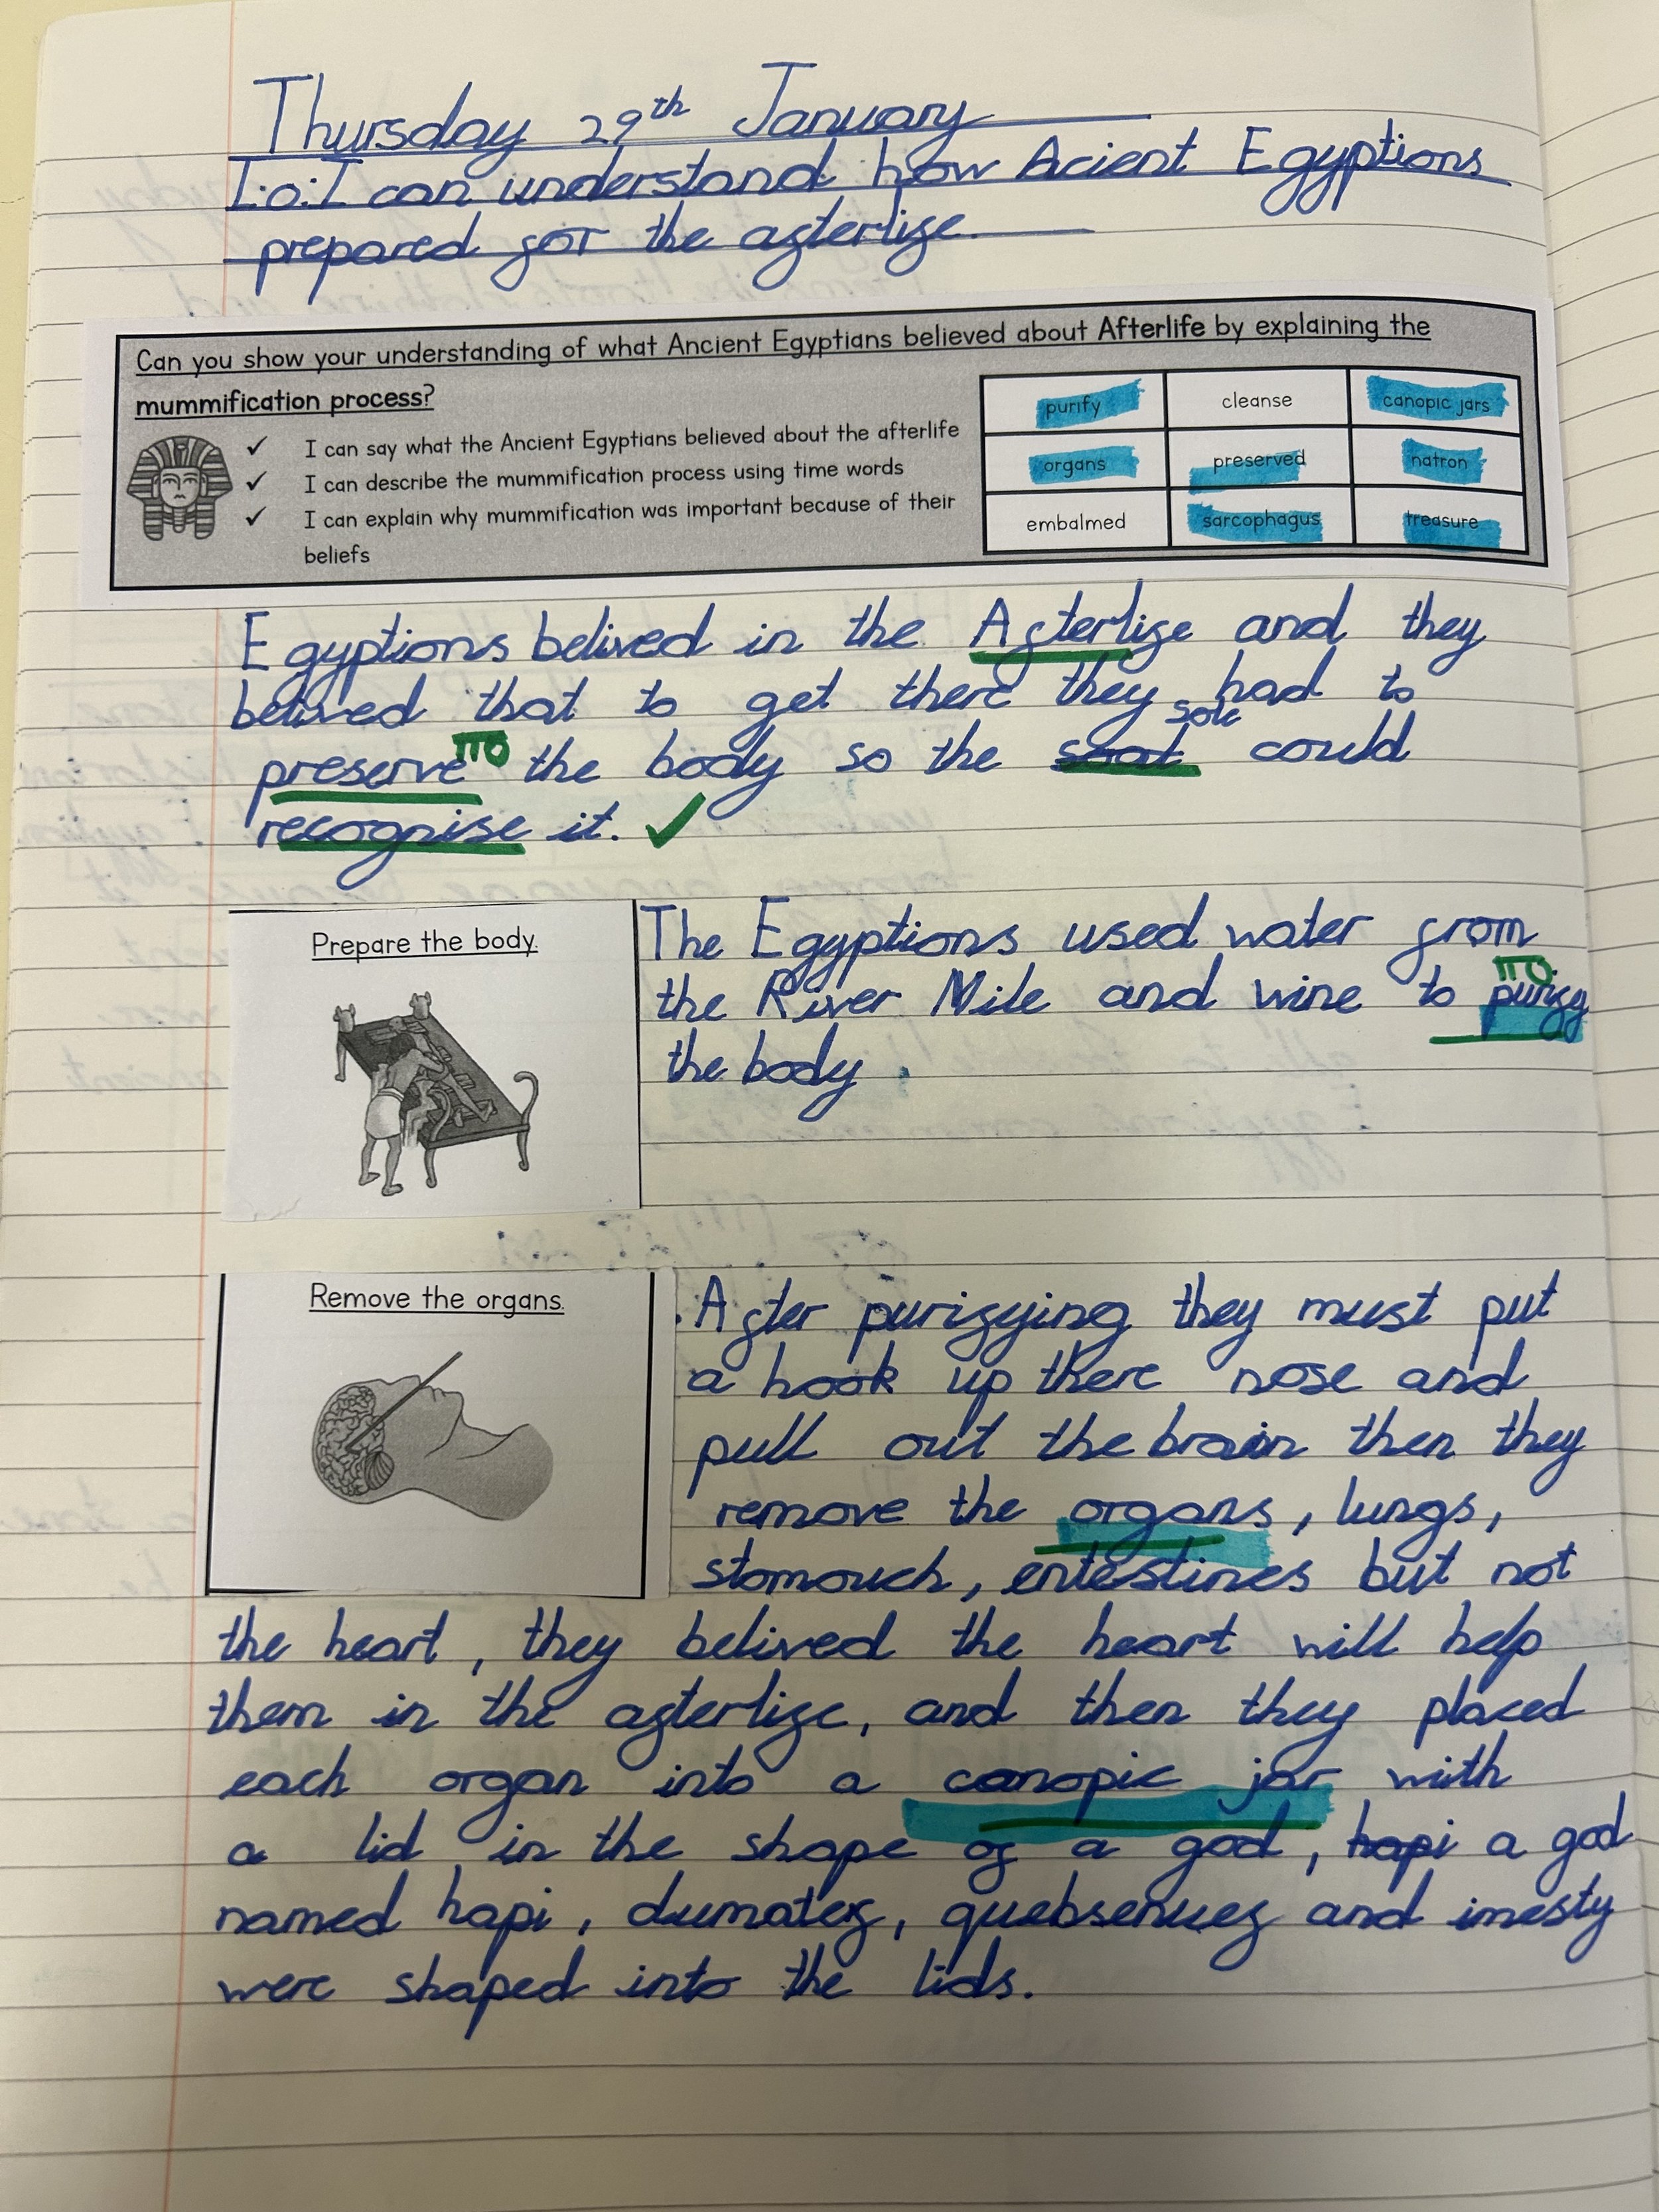 Thursday 29th January
L.o:I can understand how Acient Egyptions
prepared for the afterlife.
Can you show your understanding of what Ancient Egyptians believed about Afterlife by explaining the
mummification process?
✓ I can say what the Ancient Egyptians believed about the afterlife
✓ I can describe the mummification process using time words
✓ I can explain why mummification was important because of their
beliefs
purify cleanse canopic jars
organs preserved natron
embalmed sarcophagus treasure
Egyptions belived in the Afterlife and they
belived that to get there they had to
preserve the body so the sole could
recognise it. ✓
Prepare the body.
The Egyptions used water from
the River Nile and wine to purify
the body.
Remove the organs.
After purifying they must put
a hook up there nose and
pull out the brain then they
remove the organs, lungs,
stomouch, entestines but not
the heart, they belived the heart will help
them in the afterlife, and then they placed
each organ into a canopic jar with
a lid in the shape of a god, hapi a god
named hapi, dumatef, quebsenuef and imesty
were shaped into the lids.